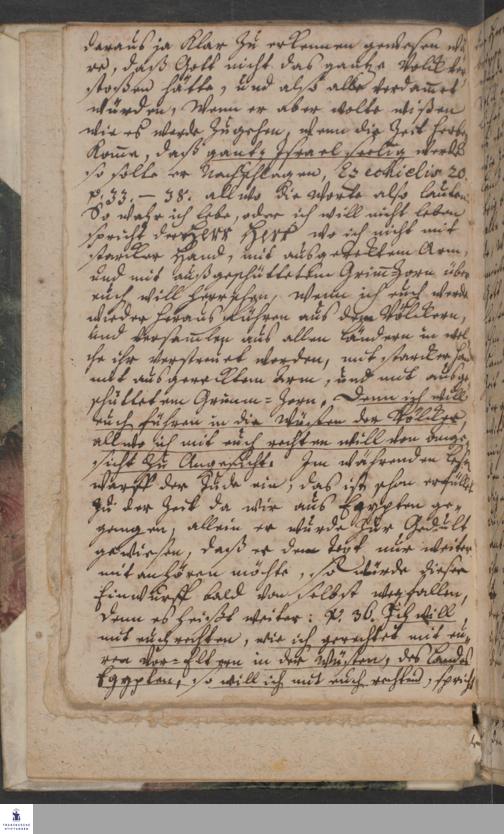 daraus ja klar zu erkennen gewesen wä
re, daß Gott nicht das gantze Volck ver
stoßen hätte, und also alle verdammet
würden, Wenn er aber wolte wißen
wie es werde zugehen, wenn die Zeit herbey
komme, daß gantz Israel seelig werde
so solte er nachschlagen, Ezechielis 20.
v. 33. — 38. allwo die Worte also lauten:
So wahr ich lebe, oder ich will nicht leben
spricht der Herr Herr wo ich nicht mit
starcker Hand, mit ausgerecktem Arm,
und mit außgeschüttetem Grimm Zorn über
euch will herrschen, wenn ich euch werde
wieder heraus führen aus den Völckern,
und versammlen aus allen Ländern in wel
che ihr verstreuet worden, mit starcker Han
mit ausgerecktem Arm, und mit ausge
schüttetem Grimm-Zorn, Denn ich will
euch führen in die Wüsten der Völcker,
allwo ich mit euch rechten will von Ange
sicht zu Angesicht. Im währenden Lesen
warff der Jude ein, das ist schon erfüllet
zu der Zeit da wir aus Egypten ge-
gangen, allein er wurde zur Gedult
gewiesen, daß er den Text nur weiter
mit anhören möchte, so würde dieser
Einwurff bald von selbst wegfallen,
denn es heißt weiter: v. 36. Ich will
mit euch rechten, wie ich gerechtet mit eu-
ren Vor-Eltern in der Wüsten, des Landes
Egypten, so will ich mit euch rechten, spricht
FRANCKESCHE
STIFTUNGEN